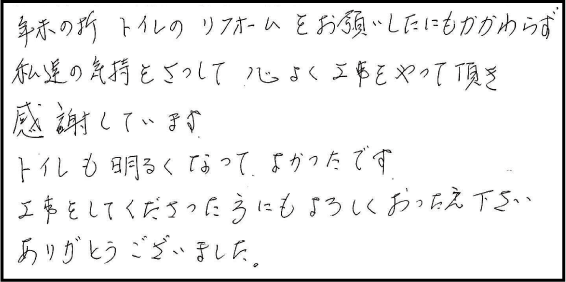 年末の折 トイレの リフォーム をお願いしたにもかかわらず
私達の気持をさっして 心よく工事をやって頂き
感謝しています
トイレも明るくなって よかったです
工事をしてくださった方にもよろしくおつたえ下さい
ありがとうございました。